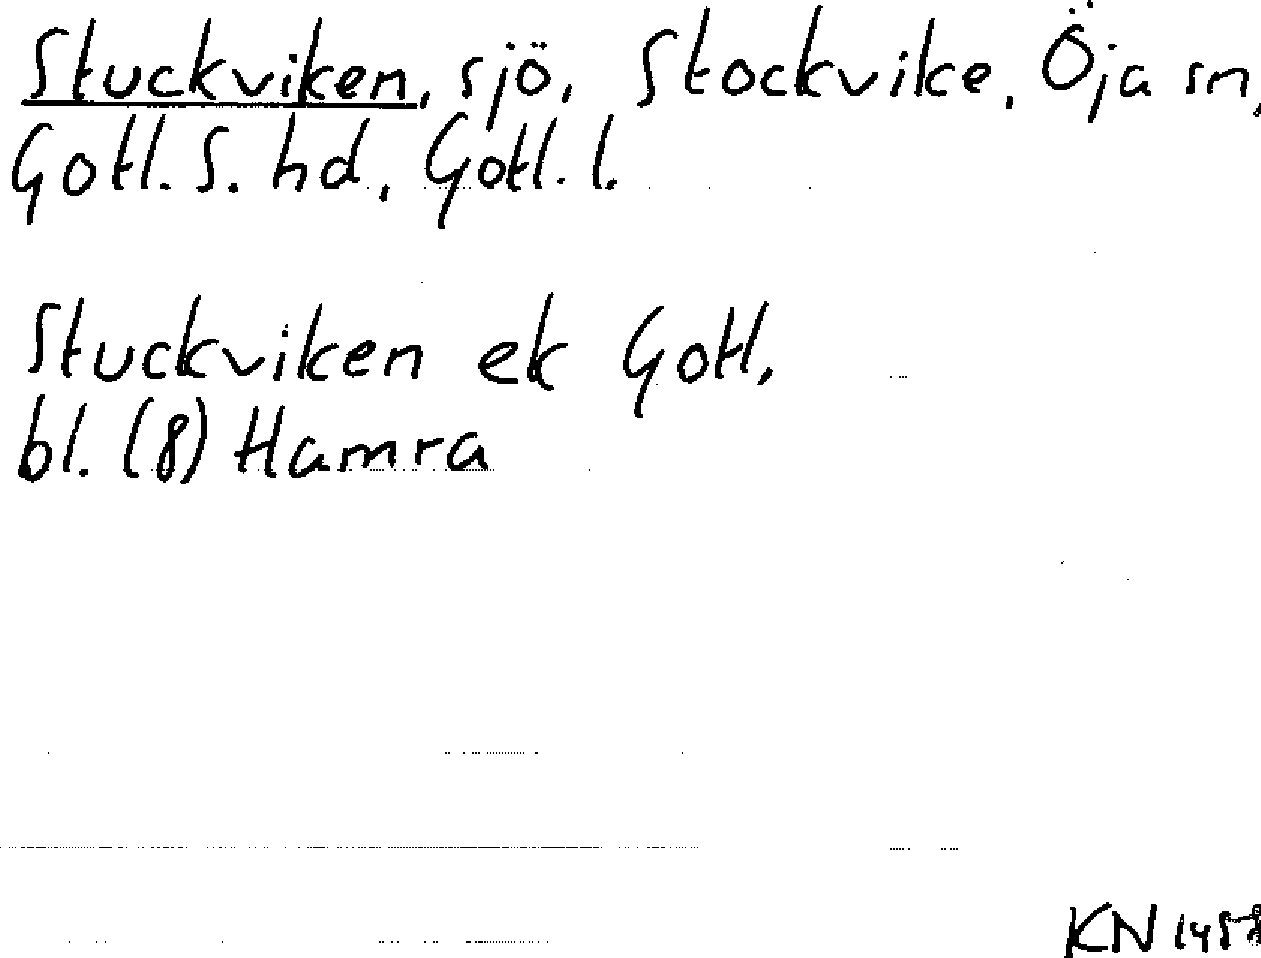 Stuckviken, sjö, Stockvike, Öja sn,
Gotl. S. hd, Gotl. l.
Stuckviken ek Gotl,
bl. (8) Hamra
KN